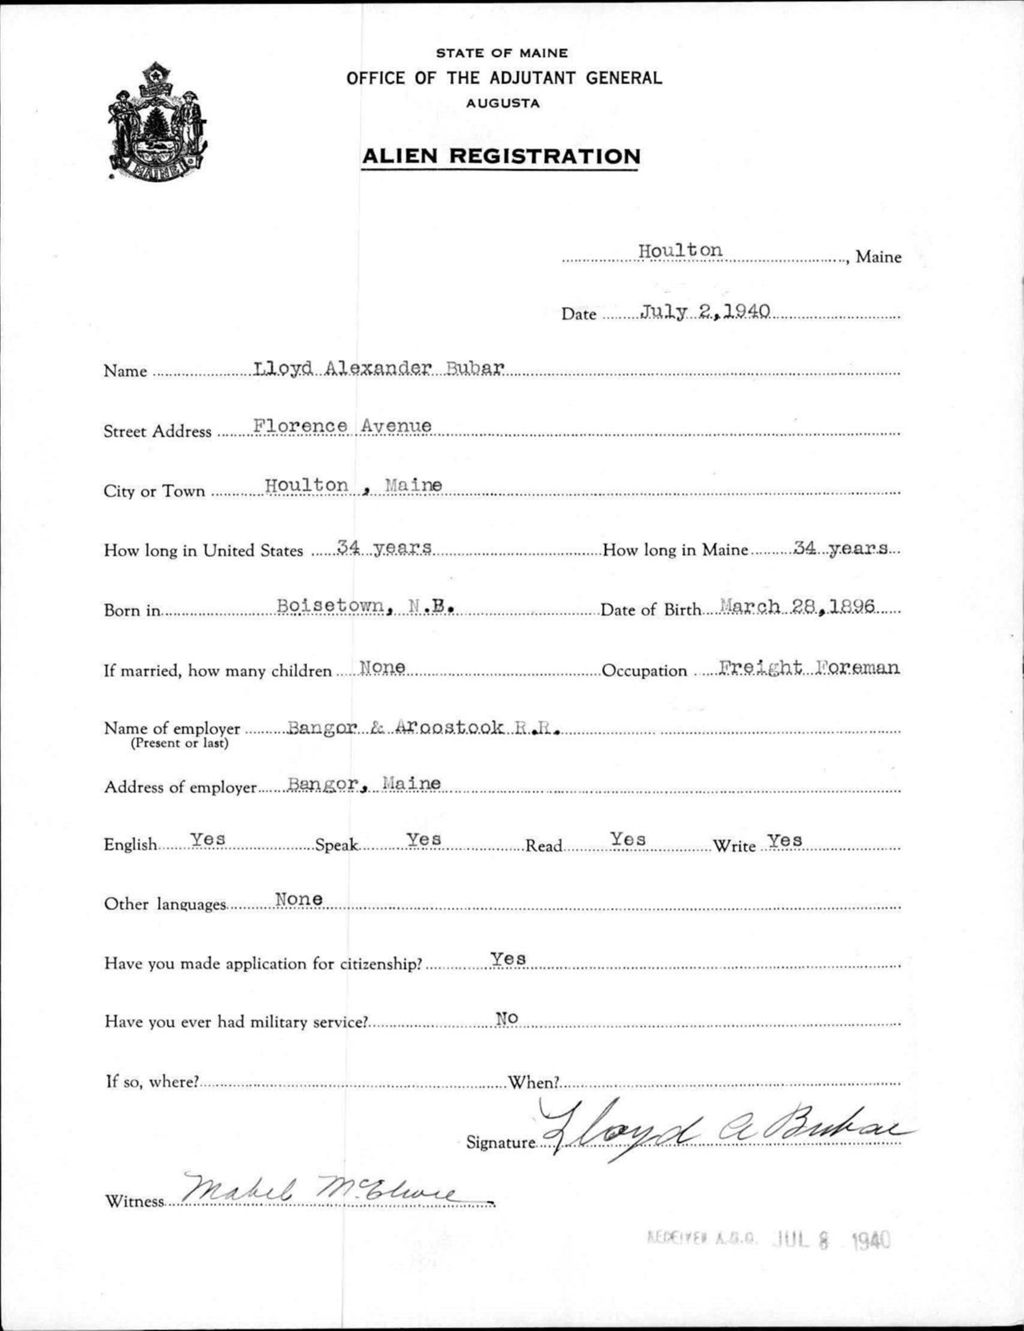 STATE OF MAINE
OFFICE OF THE ADJUTANT GENERAL
AUGUSTA
ALIEN REGISTRATION
MAINE
Houlton, Maine
Date July 2, 1940
Name Lloyd Alexander Bubar
Street Address Florence Avenue
City or Town Houlton , Maine
How long in United States 34 years How long in Maine 34 years
Born in Boisetown, N.B. Date of Birth March 28, 1896
If married, how many children None Occupation Freight Foreman
Name of employer Bangor & Aroostook R.R.
(Present or last)
Address of employer Bangor, Maine
English Yes Speak Yes Read Yes Write Yes
Other languages None
Have you made application for citizenship? Yes
Have you ever had military service? No
If so, where? When?
Signature Lloyd A Bubar
Witness Mabel McElwee
RECEIVED A.G.O. JUL 8 1940